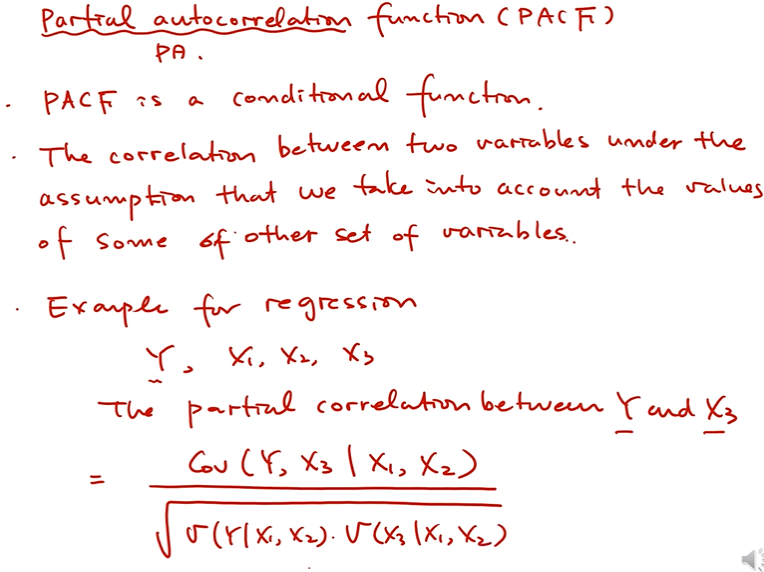 Partial autocorrelation function (PACF)
PA.
· PACF is a conditional function.
· The correlation between two variables under the
assumption that we take into account the values
of some of other set of variables..
· Example for regression
Y, X₁, X₂, X₃
The partial correlation between Y and X₃
= Cov (Y, X₃ | X₁, X₂)
√ V(Y|X₁, X₂) · V(X₃|X₁, X₂)